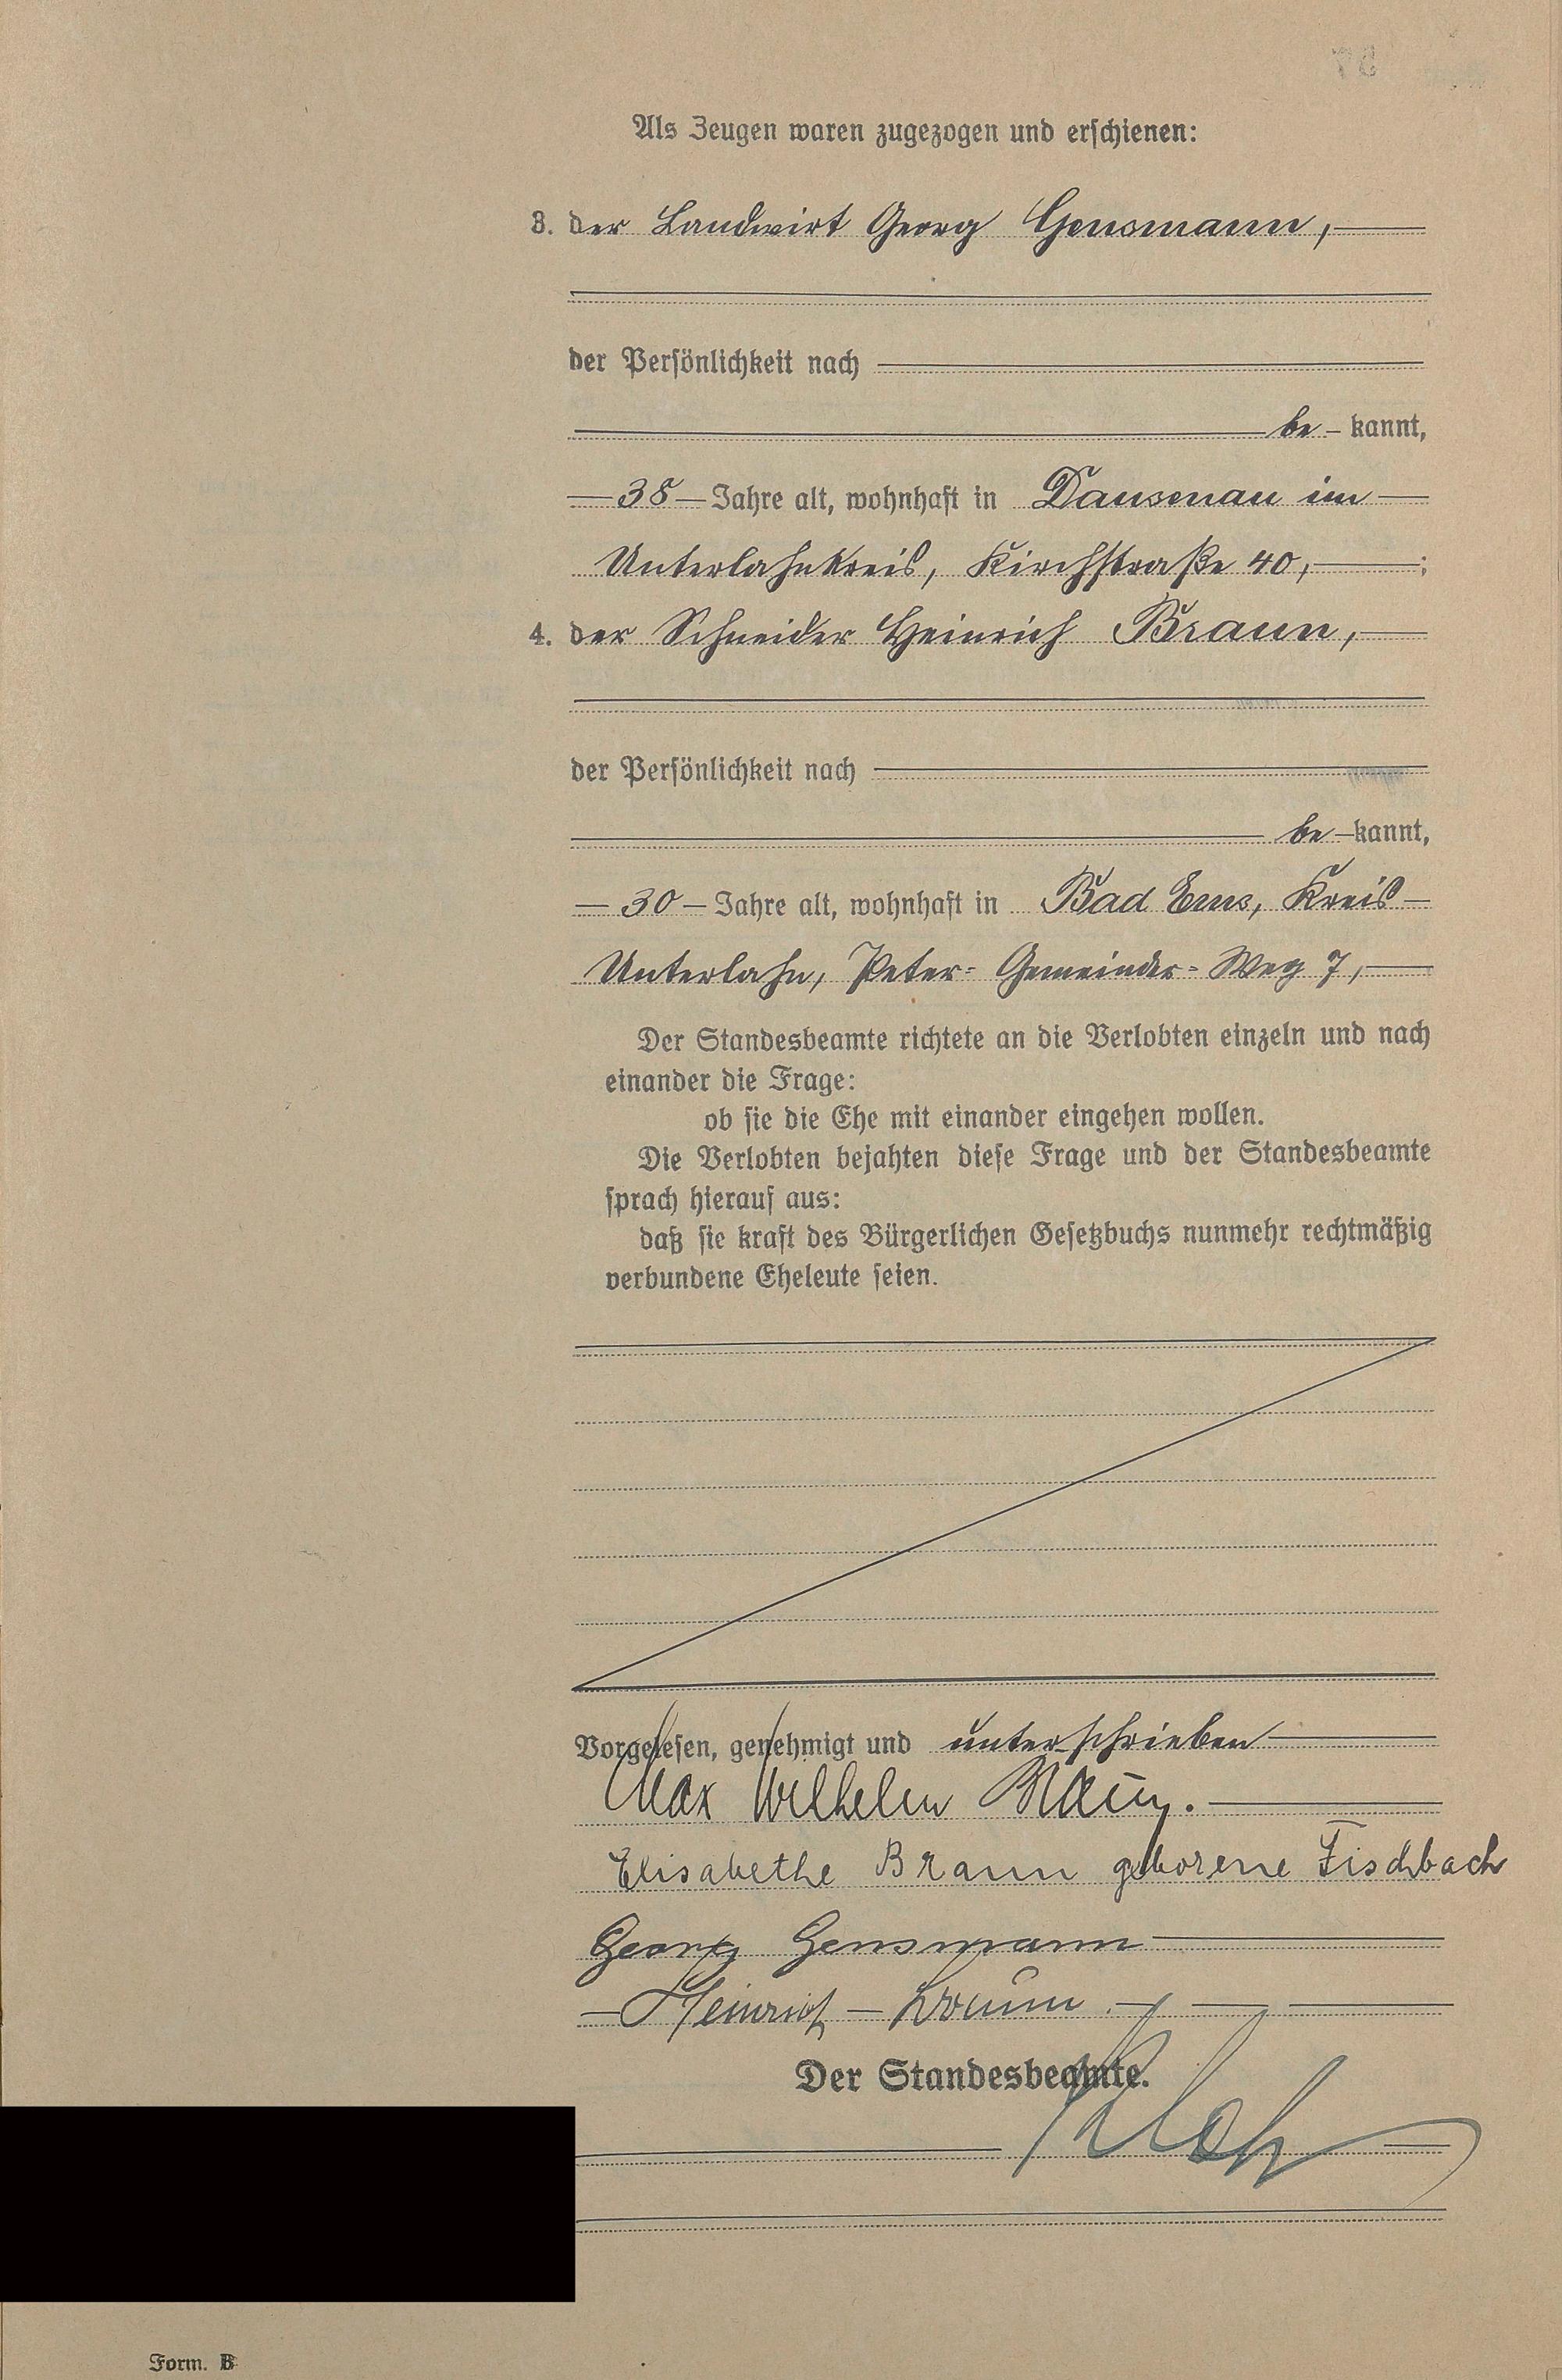 Als Zeugen waren zugezogen und erschienen:
3. der Landwirt Georg Gensmann,
der Persönlichkeit nach
be- kannt,
—38— Jahre alt, wohnhaft in Dausenau im
Unterlahnkreis, Kirchstraße 40, ;
4. der Schneider Heinrich Braun,
der Persönlichkeit nach
be- kannt,
—30— Jahre alt, wohnhaft in Bad Ems, Kreis
Unterlahn, Peter-Gemeinder-Weg 7,
Der Standesbeamte richtete an die Verlobten einzeln und nach
einander die Frage:
ob sie die Ehe mit einander eingehen wollen.
Die Verlobten bejahten diese Frage und der Standesbeamte
sprach hierauf aus:
daß sie kraft des Bürgerlichen Gesetzbuchs nunmehr rechtmäßig
verbundene Eheleute seien.
Vorgelesen, genehmigt und unterschrieben
Max Wilhelm Braun.
Elisabethe Braun geborene Fischbach
Georg Gensmann
Heinrich Braun.
Der Standesbeamte.
Form. B